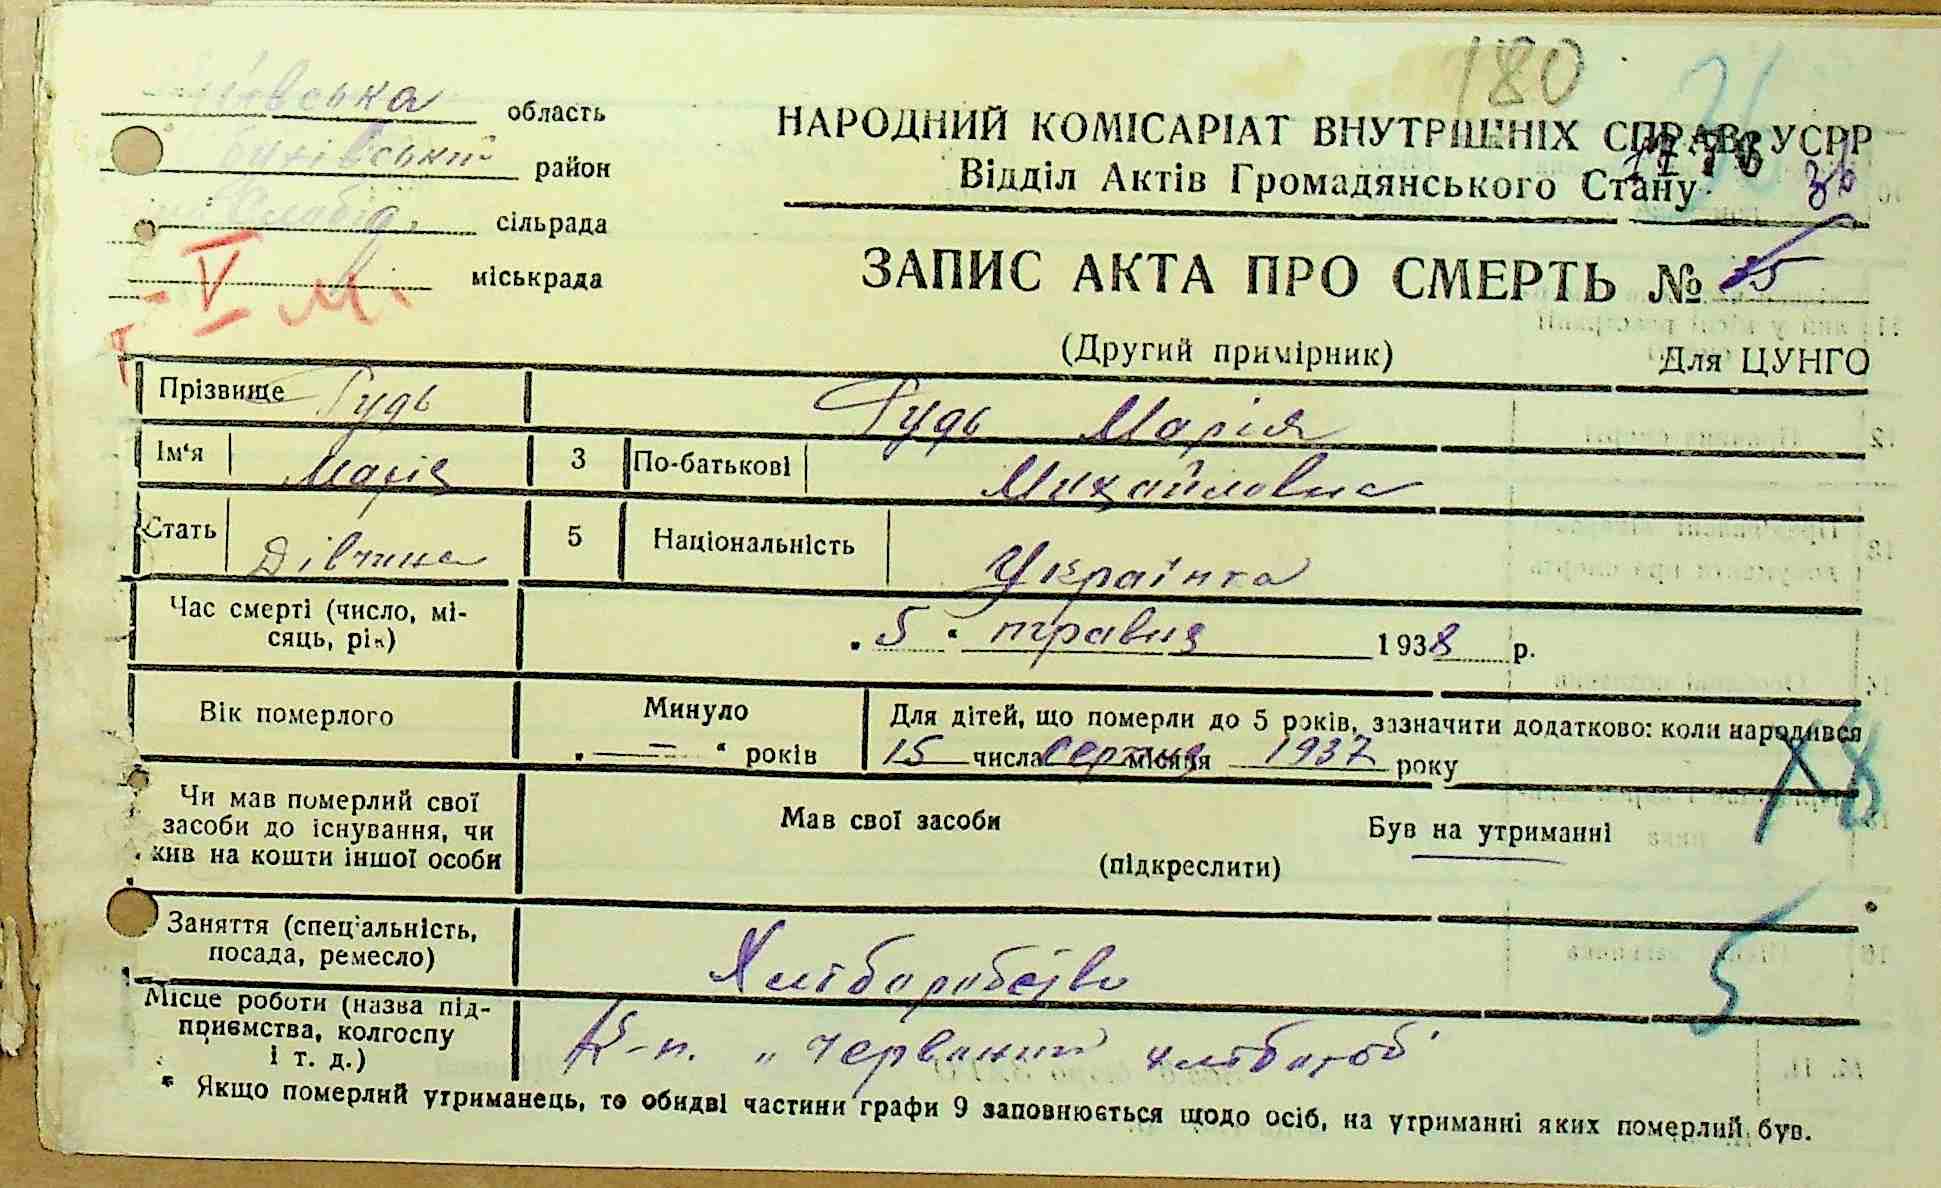 180
НАРОДНИЙ КОМІСАРІАТ ВНУТРІШНІХ СПРАВ УСРР
Відділ Актів Громадянського Стану
36
область
район
сільрада
міськрада
V м.
ЗАПИС АКТА ПРО СМЕРТЬ №
(Другий примірник) Для ЦУНГО
Прізвище Рудь Рудь Марія
Ім'я Марія 3 По-батькові Михайловна
Стать Дівчина 5 Національність Українка
Час смерті (число, мі-
сяць, рік) "5" травня 1938 р.
Вік померлого Минуло "—" років
Для дітей, що померли до 5 років, зазначити додатково: коли народився
15 числа серпня місяця 1937 року
Чи мав померлий свої
засоби до існування, чи
жив на кошти іншої особи
Мав свої засоби Був на утриманні
(підкреслити)
Заняття (спеціальність,
посада, ремесло) Хліборобство
5
Місце роботи (назва під-
приємства, колгоспу
і т. д.) К-п. „Червоний хлібороб"
* Якщо померлий утриманець, то обидві частини графи 9 заповнюється щодо осіб, на утриманні яких померлий був.